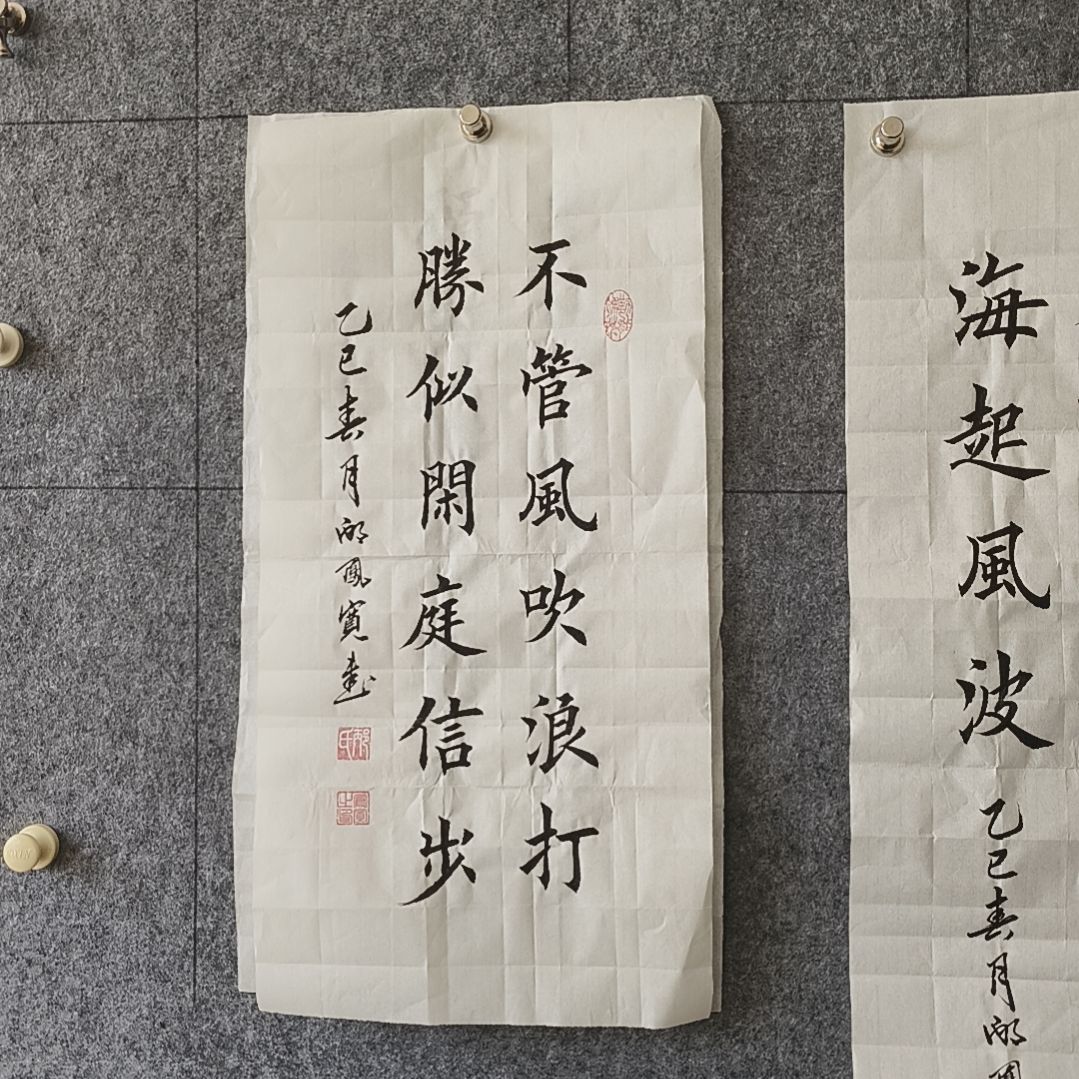 不管風吹浪打
勝似閑庭信步
乙巳春月邴鳳寶書
海起風波
乙巳春月邴鳳